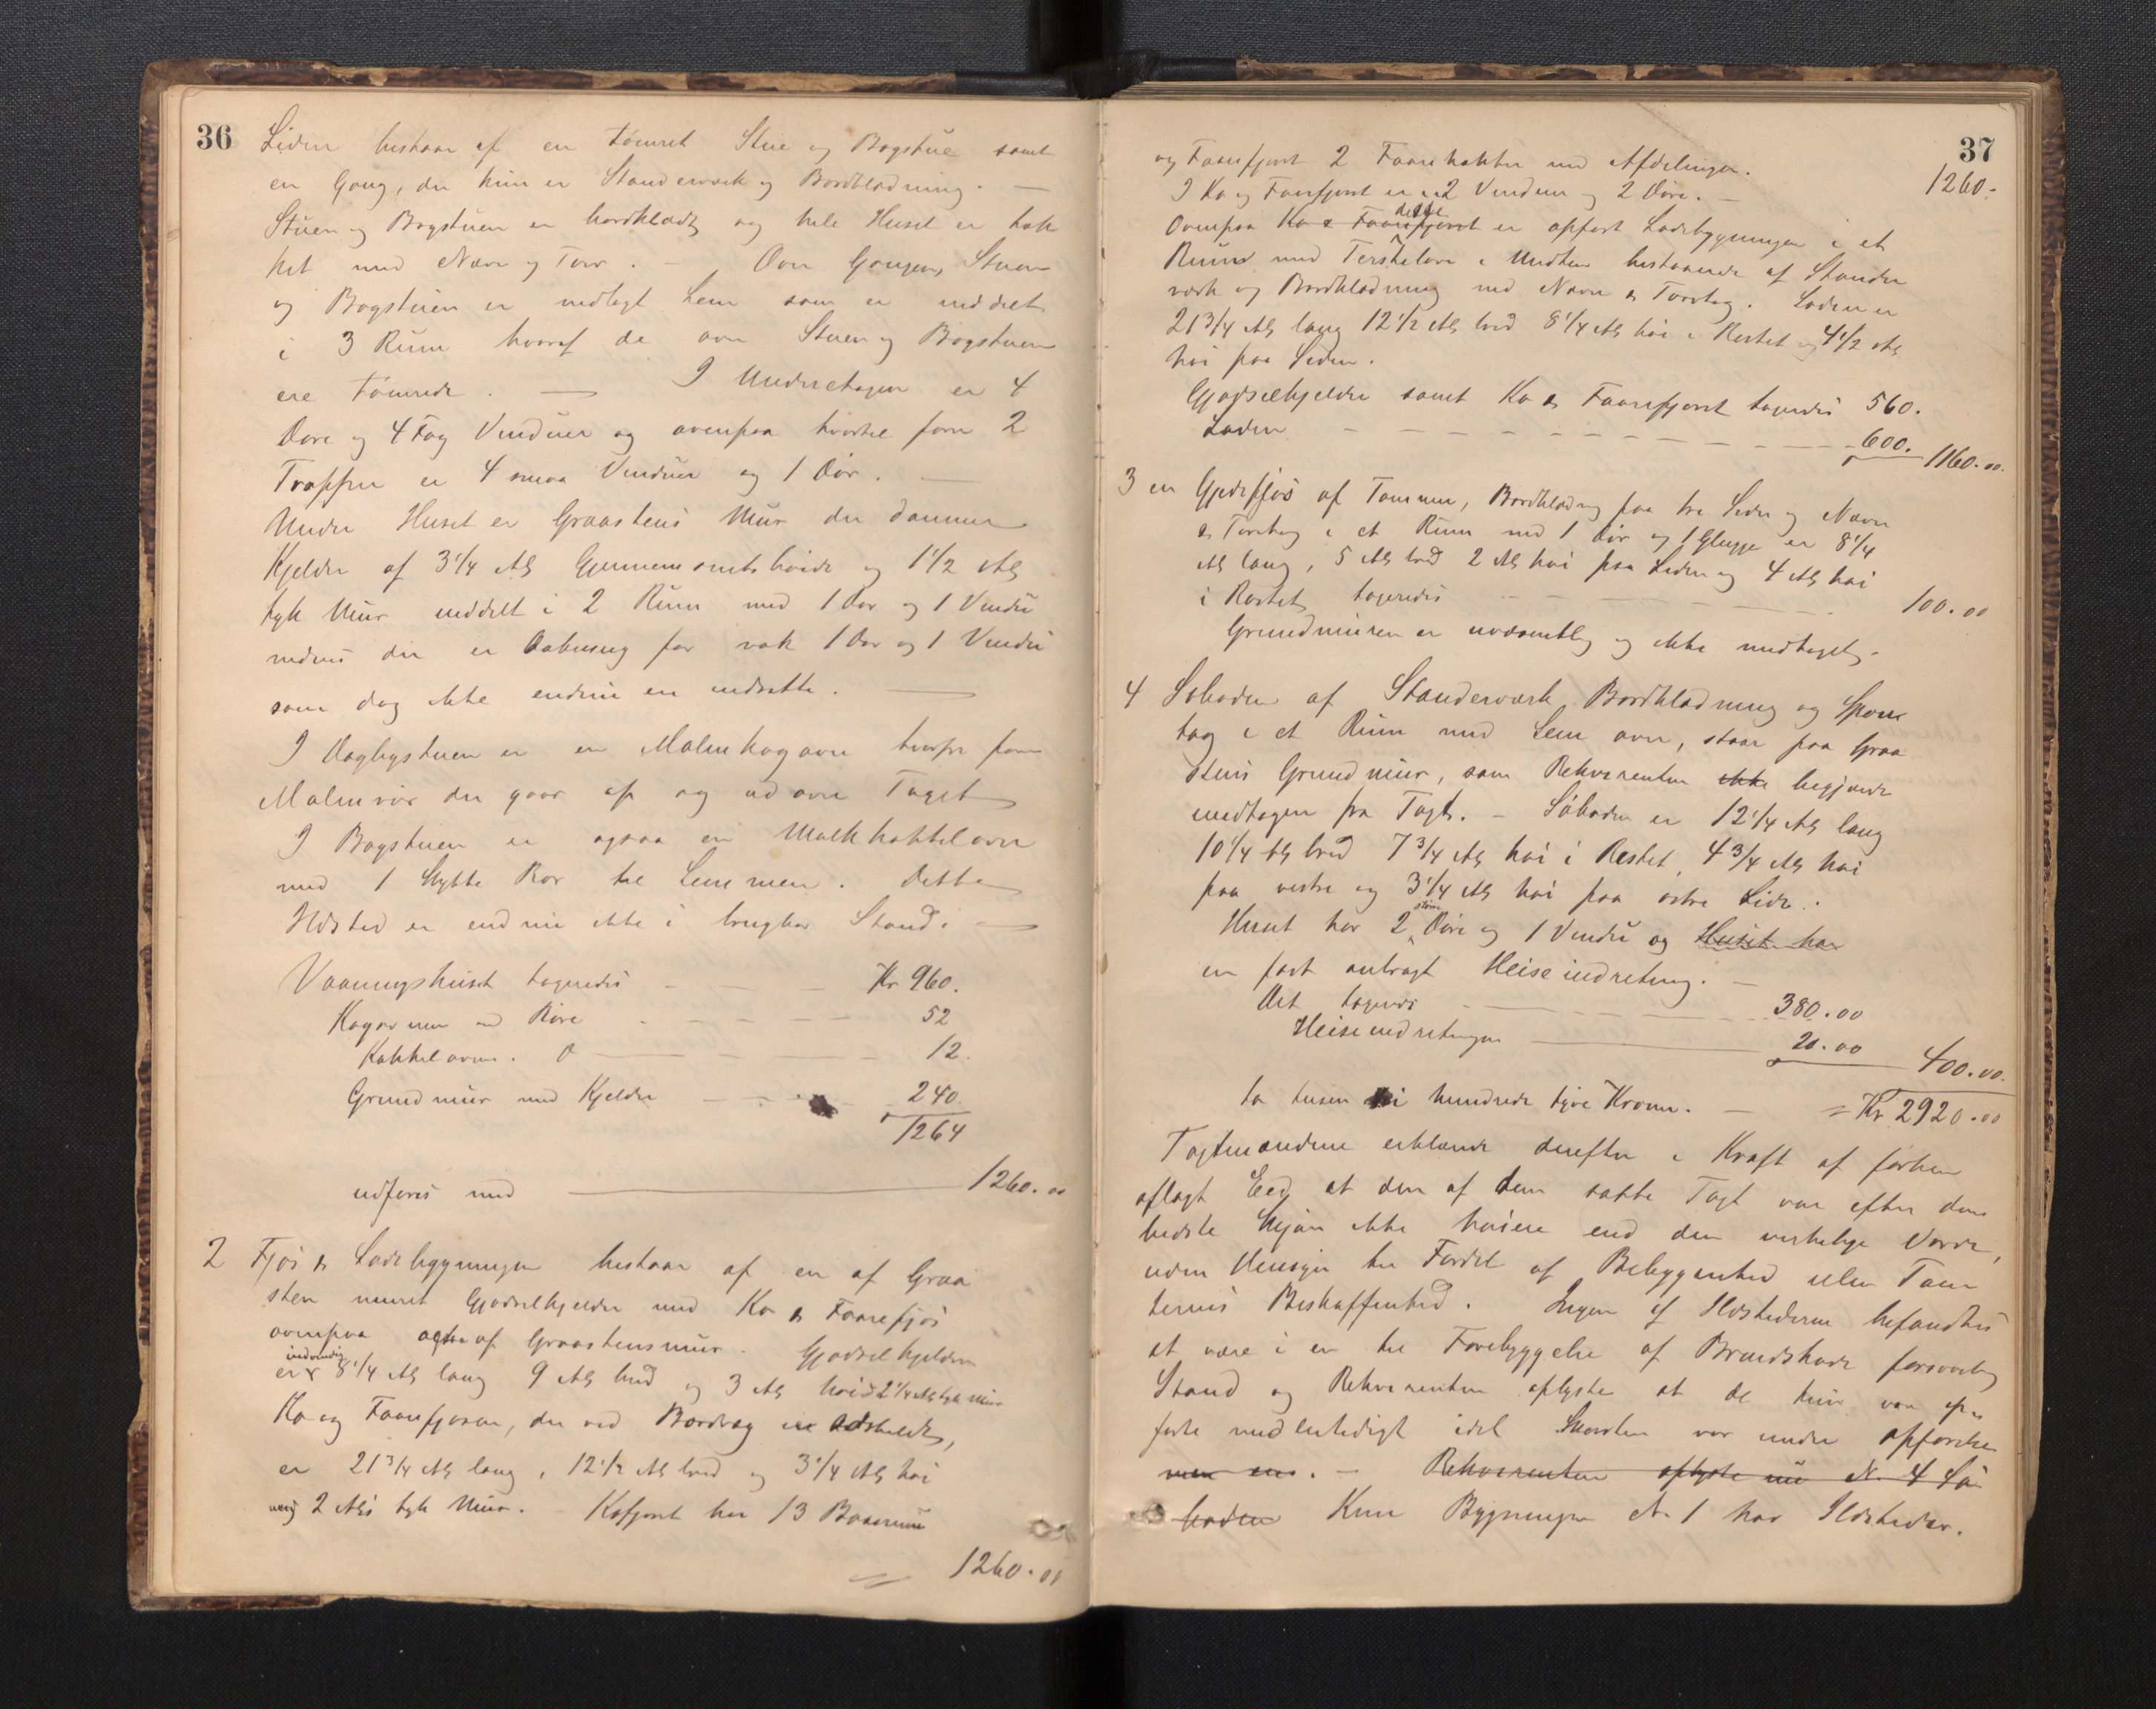 36
Siden bestaar af en tømret Stue og Bagstue samt
en Gang, der kun er Standerværk og Bordklædning. —
Stuen og Bagstuen er bordklædt og hele Huset er tæk
ket med Næver og Torv. — Over Gangen, Stuen
og Bagstuen er indlagt Lem som er inddelt
i 3 Rum hvoraf de over Stuen og Bagstuen
ere tømrede. — I Underetagen er 4
Døre og 4 Fag Vinduer og ovenpaa hvortil fører 2
Trapper er 4 smaa Vinduer og 1 Dør. —
Under Huset er Graastens Mur der danner
Kjelder af 3 1/4 Al Gjennemsnitshøide og 1 1/2 Al
tyk Mur inddelt i 2 Rum med 1 Dør og 1 Vindu
medens der er Aabning for nok 1 Dør og 1 Vindu
som dog ikke endnu er indsatte. —
I Dagligstuen er en Malmkogovn hvorfra fører
Malmrør der gaar op og ud over Taget
I Bagstuen er ogsaa en Kakkelovn
med 1 Stykke Rør til Lemmen. Dette
Ildsted er endnu ikke i brugbar Stand. —
Vaaningshuset taxeredes — — — Kr 960.
Kogovnen med Røre — — — — 52
Kakkelovnen. D — — — 12.
Grundmur med Kjelder — — — 240
1264
udføres med — 1260.00
2 Fjøs & Ladebygningen bestaar af en af Graa
sten muret Gjødselkjelder med Ko & Faarefjøs
ovenpaa ogsaa af Graastensmur. Gjødselkjelderen
er indvendig 8 1/4 Al lang 9 Al bred og 3 Al høi & 2 1/4 Al tyk Mur
Ko og Faarefjøsen, der ved Bordvæg er adskildt,
er 21 3/4 Al lang, 12 1/2 Al bred og 3 1/4 Al høi
med 2 Al tyk Mur. – Kofjøset har 13 Baaserum
1260.00
37
1260.-
og Faarefjøset 2 Faarekrakker med Afdelinger.
I Ko og Faarefjøset er 2 Vinduer og 2 Døre. —
Ovenpaa Ko & Faarefjøset dette er opført Ladebygningen i et
Rum med Terskelove i Midten bestaaende af Stander
værk og Bordklædning med Næver & Torvtag. Laden er
21 3/4 Al lang 12 1/2 Al bred 8 1/4 Al høi i Røstet og 4 1/2 Al
høi paa Siden.
Gjødselkjelder samt Ko & Faarefjøset taxeredes 560.
Laden — — — — — — 600. 1160.00
3 en Gjedefjøs af Tømmer, Bordklædning paa tre Sider og Næver
& Torvtag i et Rum med 1 Dør og 1 Glugge er 8 1/4
Al lang, 5 Al bred 2 Al høi paa Siden og 4 Al høi
i Røstet, taxeredes — — — 100.00
Grundmuren er uvæsentlig og ikke medtaget. –
4 Søboden af Standerværk Bordklædning og Spon
tag i et Rum med Lem over, staar paa Graa
stens Grundmur, som Rekvirenten ikke begjærede
medtagen fra Taxt. – Søboden er 12 1/4 Al lang
10 1/4 Al bred 7 3/4 Al høi i Røstet, 4 3/4 Al høi
paa vestre og 3 1/4 Al høi paa østre Side.
Huset har 2 større Døre og 1 Vindu og Huset har
en fast anbragt Heiseindretning. —
Det taxeredes — — — 380.00
Heiseindretningen — 20.00 400.00
to tusen ni hundrede tyve Kroner. — = Kr 2920.00
Taxtmændene erklærede derefter i Kraft af forhen
aflagt Eed at den af dem satte Taxt var efter deres
bedste Skjøn ikke høiere end den virkelige Værdi,
uden Hensyn til Fordel af Beliggenhed eller Tom
ternes Beskaffenhed. Ingen af Ildstederne befandtes
at være i en til Forebyggelse af Brandskade forsvarlig
Stand og Rekvirenten oplyste at de kun var op-
førte midlertidigt idet Skorsten var under opførelse
men ens. – Rekvirenten oplyste nu N. 4 Sø
boden Kun Bygningen N. 1 har Ildsteder.